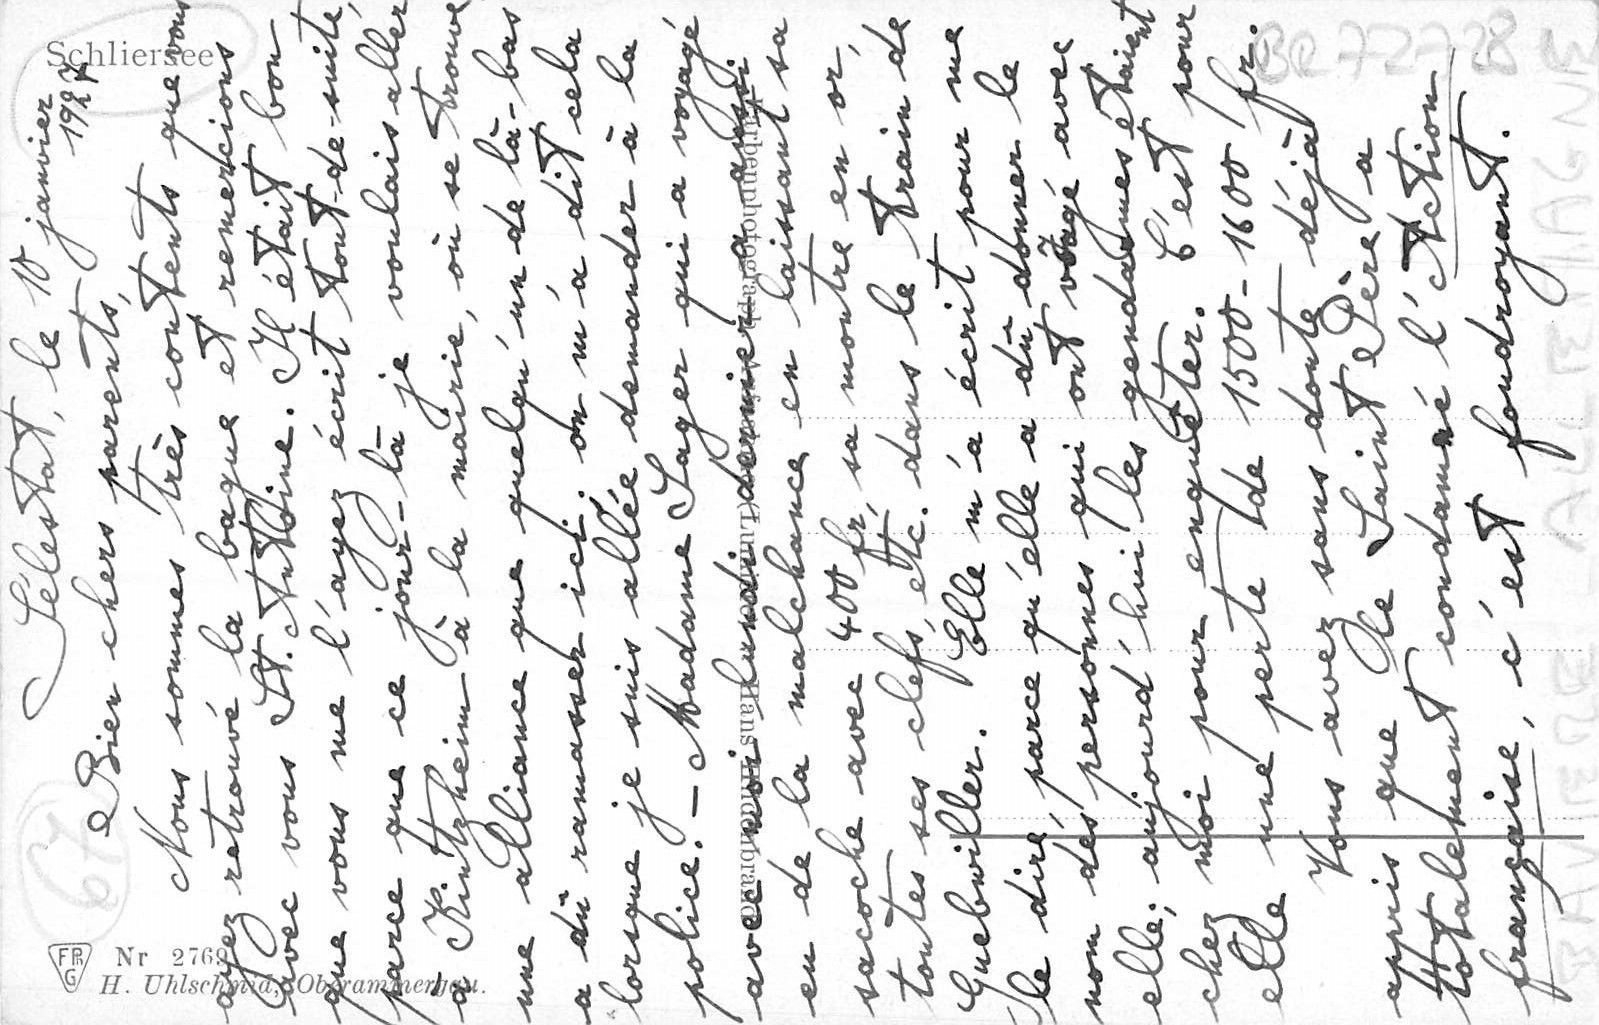 Schliersee
Sélestat, le 10 janvier
1927
Bien chers parents,
Nous sommes très contents que vous
ayez retrouvé la bague et remercions
avec vous St. Antoine. Il était bon
que vous me l'ayez écrit tout-de-suite,
parce que ce jour-là je voulais aller
à Kintzheim à la mairie, où se trouve
une alliance que quelqu'un de là-bas
a dû ramasser ici; on m'a dit cela
lorsque je suis allée demander à la
police. — Madame Sager qui a voyagé
avec moi lundi dernier a aussi
eu de la malchance en laissant sa
sacoche avec 400 fr, sa montre en or,
toutes ses clefs, etc. dans le train de
Guebwiller. Elle m'a écrit pour me
le dire, parce qu'elle a dû donner le
nom des personnes qui ont voyagé avec
elle; aujourd'hui les gendarmes étaient
chez moi pour enquêter. C'est pour
elle une perte de 1500-1600 fr.
Vous avez sans doute déjà
appris que le Saint Père a
totalement condamné l'Action
française, c'est foudroyant.
Farbenphotograph. Hans Hildenbrand
FPG
Nr 2769
H. Uhlschmid, Oberammergau.
BR 72728
67